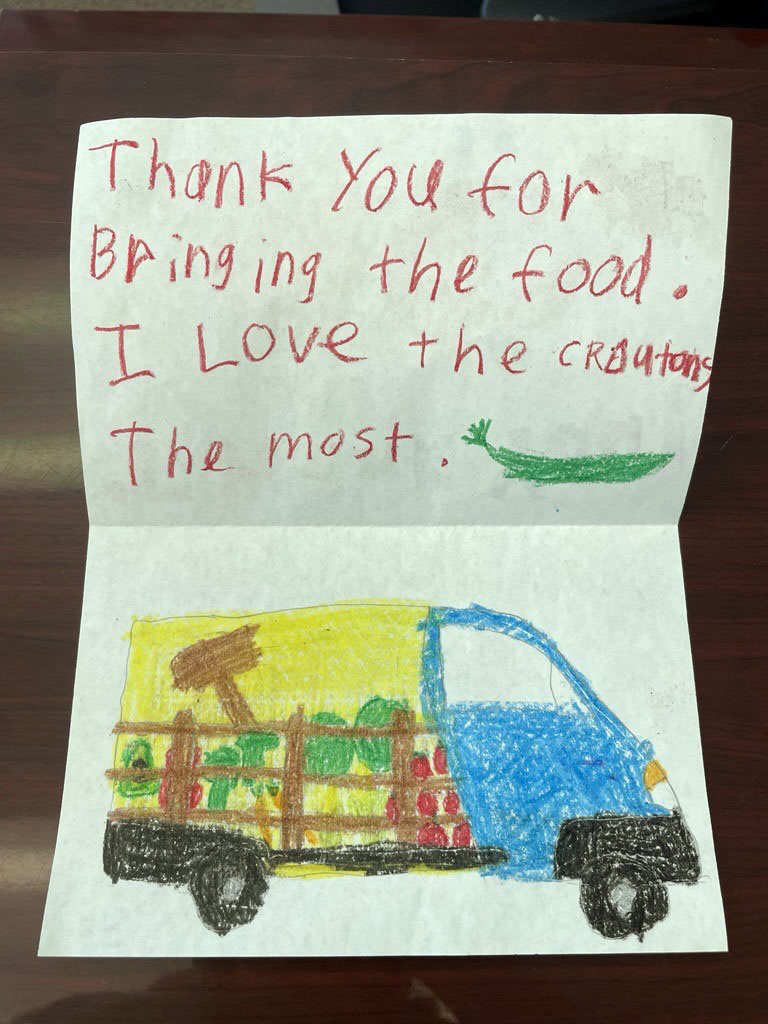 Thank You for
Bringing the food.
I Love the CROutons
The most.